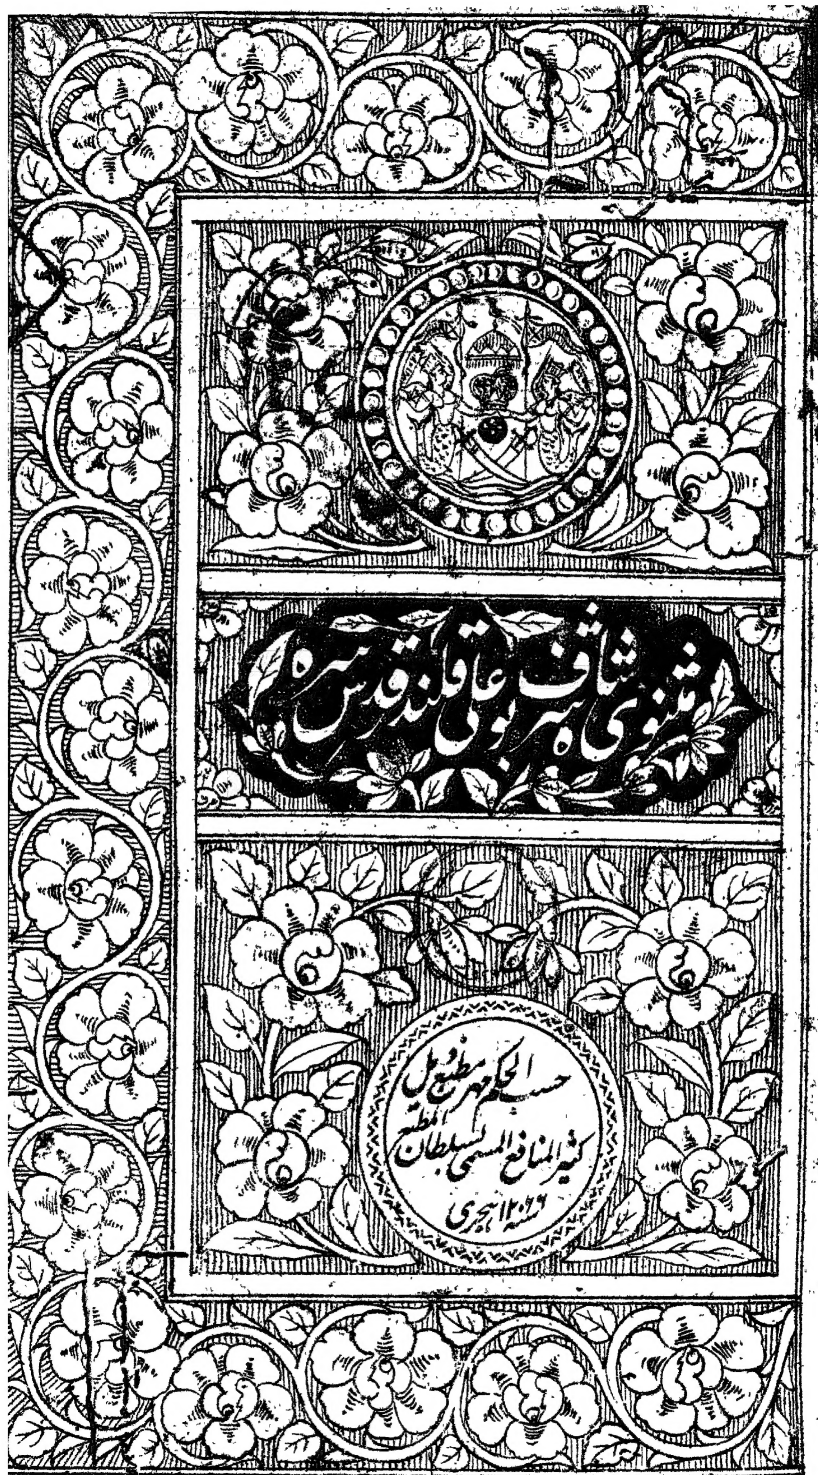 مثنوی شاه شرف بو علی قلندر قدس سره
حسب الحکم مهر مطبع و محل
کثیر المنافع المسمی لسلطان المطبع
سنه ۱۲۶۶ هجری